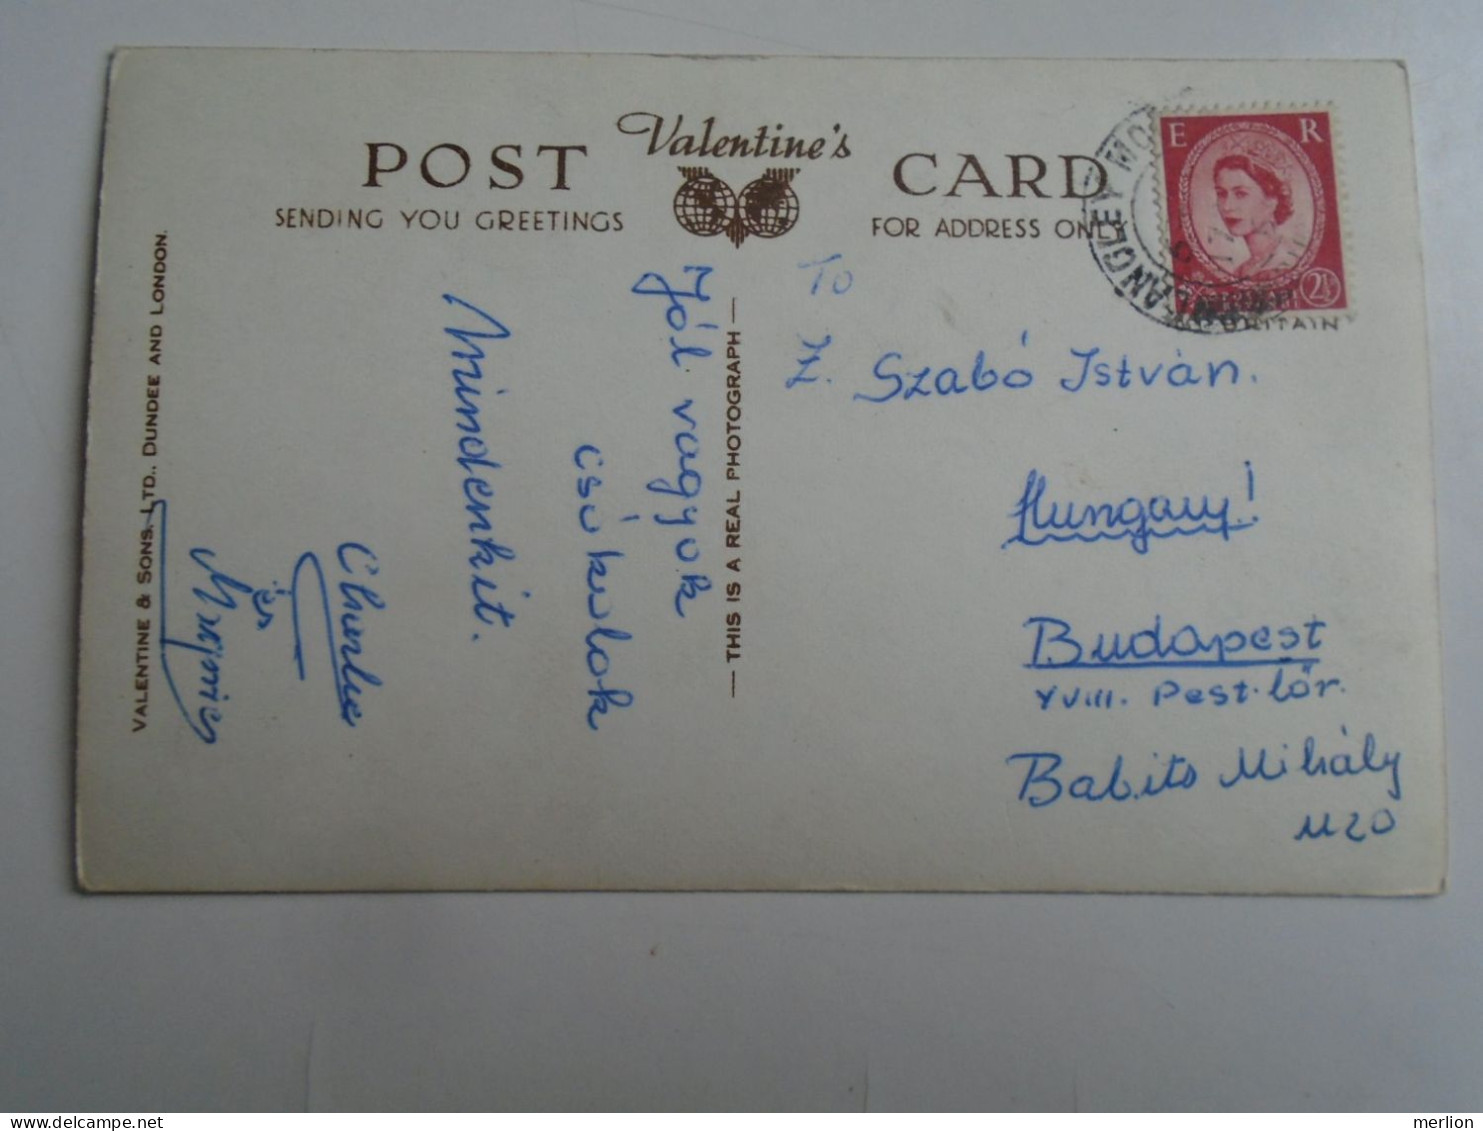 POST Valentine's CARD
SENDING YOU GREETINGS
FOR ADDRESS ONLY
E R
2½
LANGLEY MO
BRITAIN
To
Z. Szabó István.
Hungary!
Budapest
XVIII. Pest-lőr.
Babits Mihály
u 20
Jól vagyok
csókolok
Mindenkit.
Charles
és
THIS IS A REAL PHOTOGRAPH
VALENTINE & SONS, LTD., DUNDEE AND LONDON.
merlion